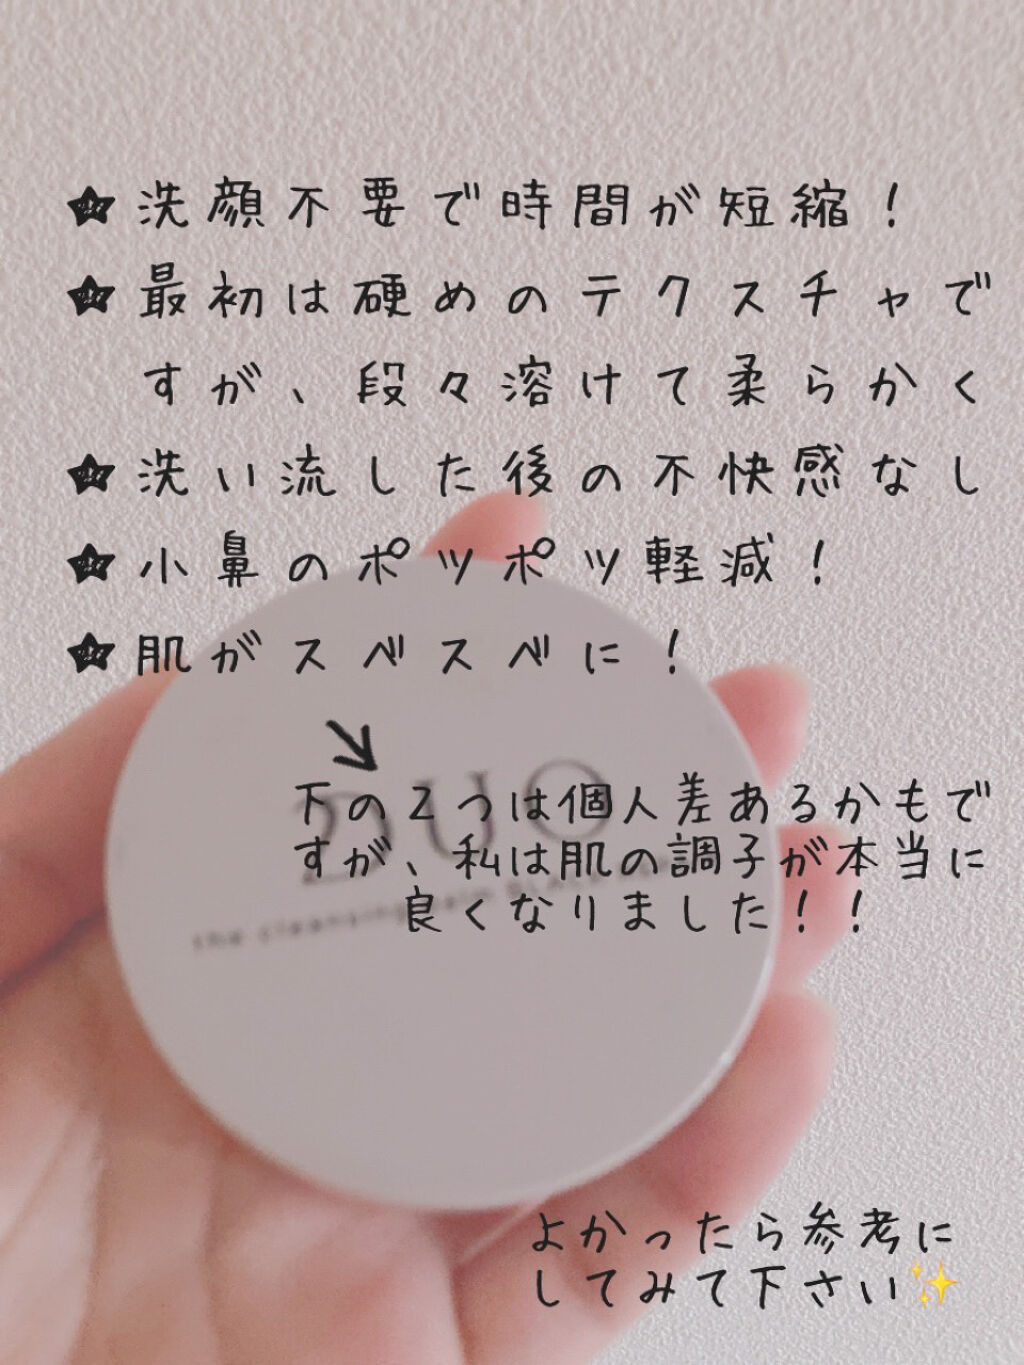 ★洗顔不要で時間が短縮！
★最初は硬めのテクスチャで
すが、段々溶けて柔らかく
★洗い流した後の不快感なし
★小鼻のポツポツ軽減！
★肌がスベスベに！
下の2つは個人差あるかもで
すが、私は肌の調子が本当に
良くなりました！！
DUO
the cleansing balm BLACK
よかったら参考に
してみて下さい✨